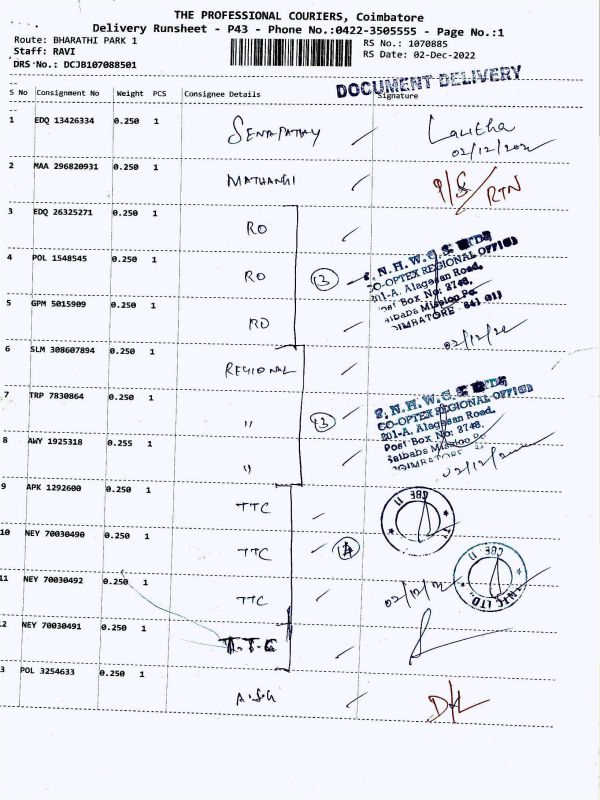 THE PROFESSIONAL COURIERS, Coimbatore
Delivery Runsheet - P43 - Phone No.:0422-3505555 - Page No.:1
Route: BHARATHI PARK 1
RS No.: 1070885
Staff: RAVI
RS Date: 02-Dec-2022
DRS No.: DCJB107088501
DOCUMENT DELIVERY
S No Consignment No Weight PCS Consignee Details Signature
1 EDQ 13426334 0.250 1 SENAPATHY Lalitha
02/12/2022
2 MAA 296820931 0.250 1 MATHANGI P/S/RTN
3 EDQ 26325271 0.250 1 RO
4 POL 1548545 0.250 1 RO 13
CO-OPTEX REGIONAL OFFICE
201-A, Alagesan Road,
Post Box No: 2748,
Saibaba Mission Po.
COIMBATORE - 641 011
5 GPM 5015909 0.250 1 RO
02/12/22
6 SLM 308607894 0.250 1 REGIONAL
7 TRP 7830864 0.250 1 " 13
CO-OPTEX REGIONAL OFFICE
201-A, Alagesan Road,
Post Box No: 2748,
Saibaba Mission Po.
COIMBATORE
8 AWY 1925318 0.255 1 "
02/12/2022
9 APK 1292600 0.250 1 TTC
CBE 11
10 NEY 70030490 0.250 1 TTC 14
CBE 11
11 NEY 70030492 0.250 1 TTC
02/12/22
NTC LTD.
2 NEY 70030491 0.250 1
3 POL 3254633 0.250 1 A.SG D/L